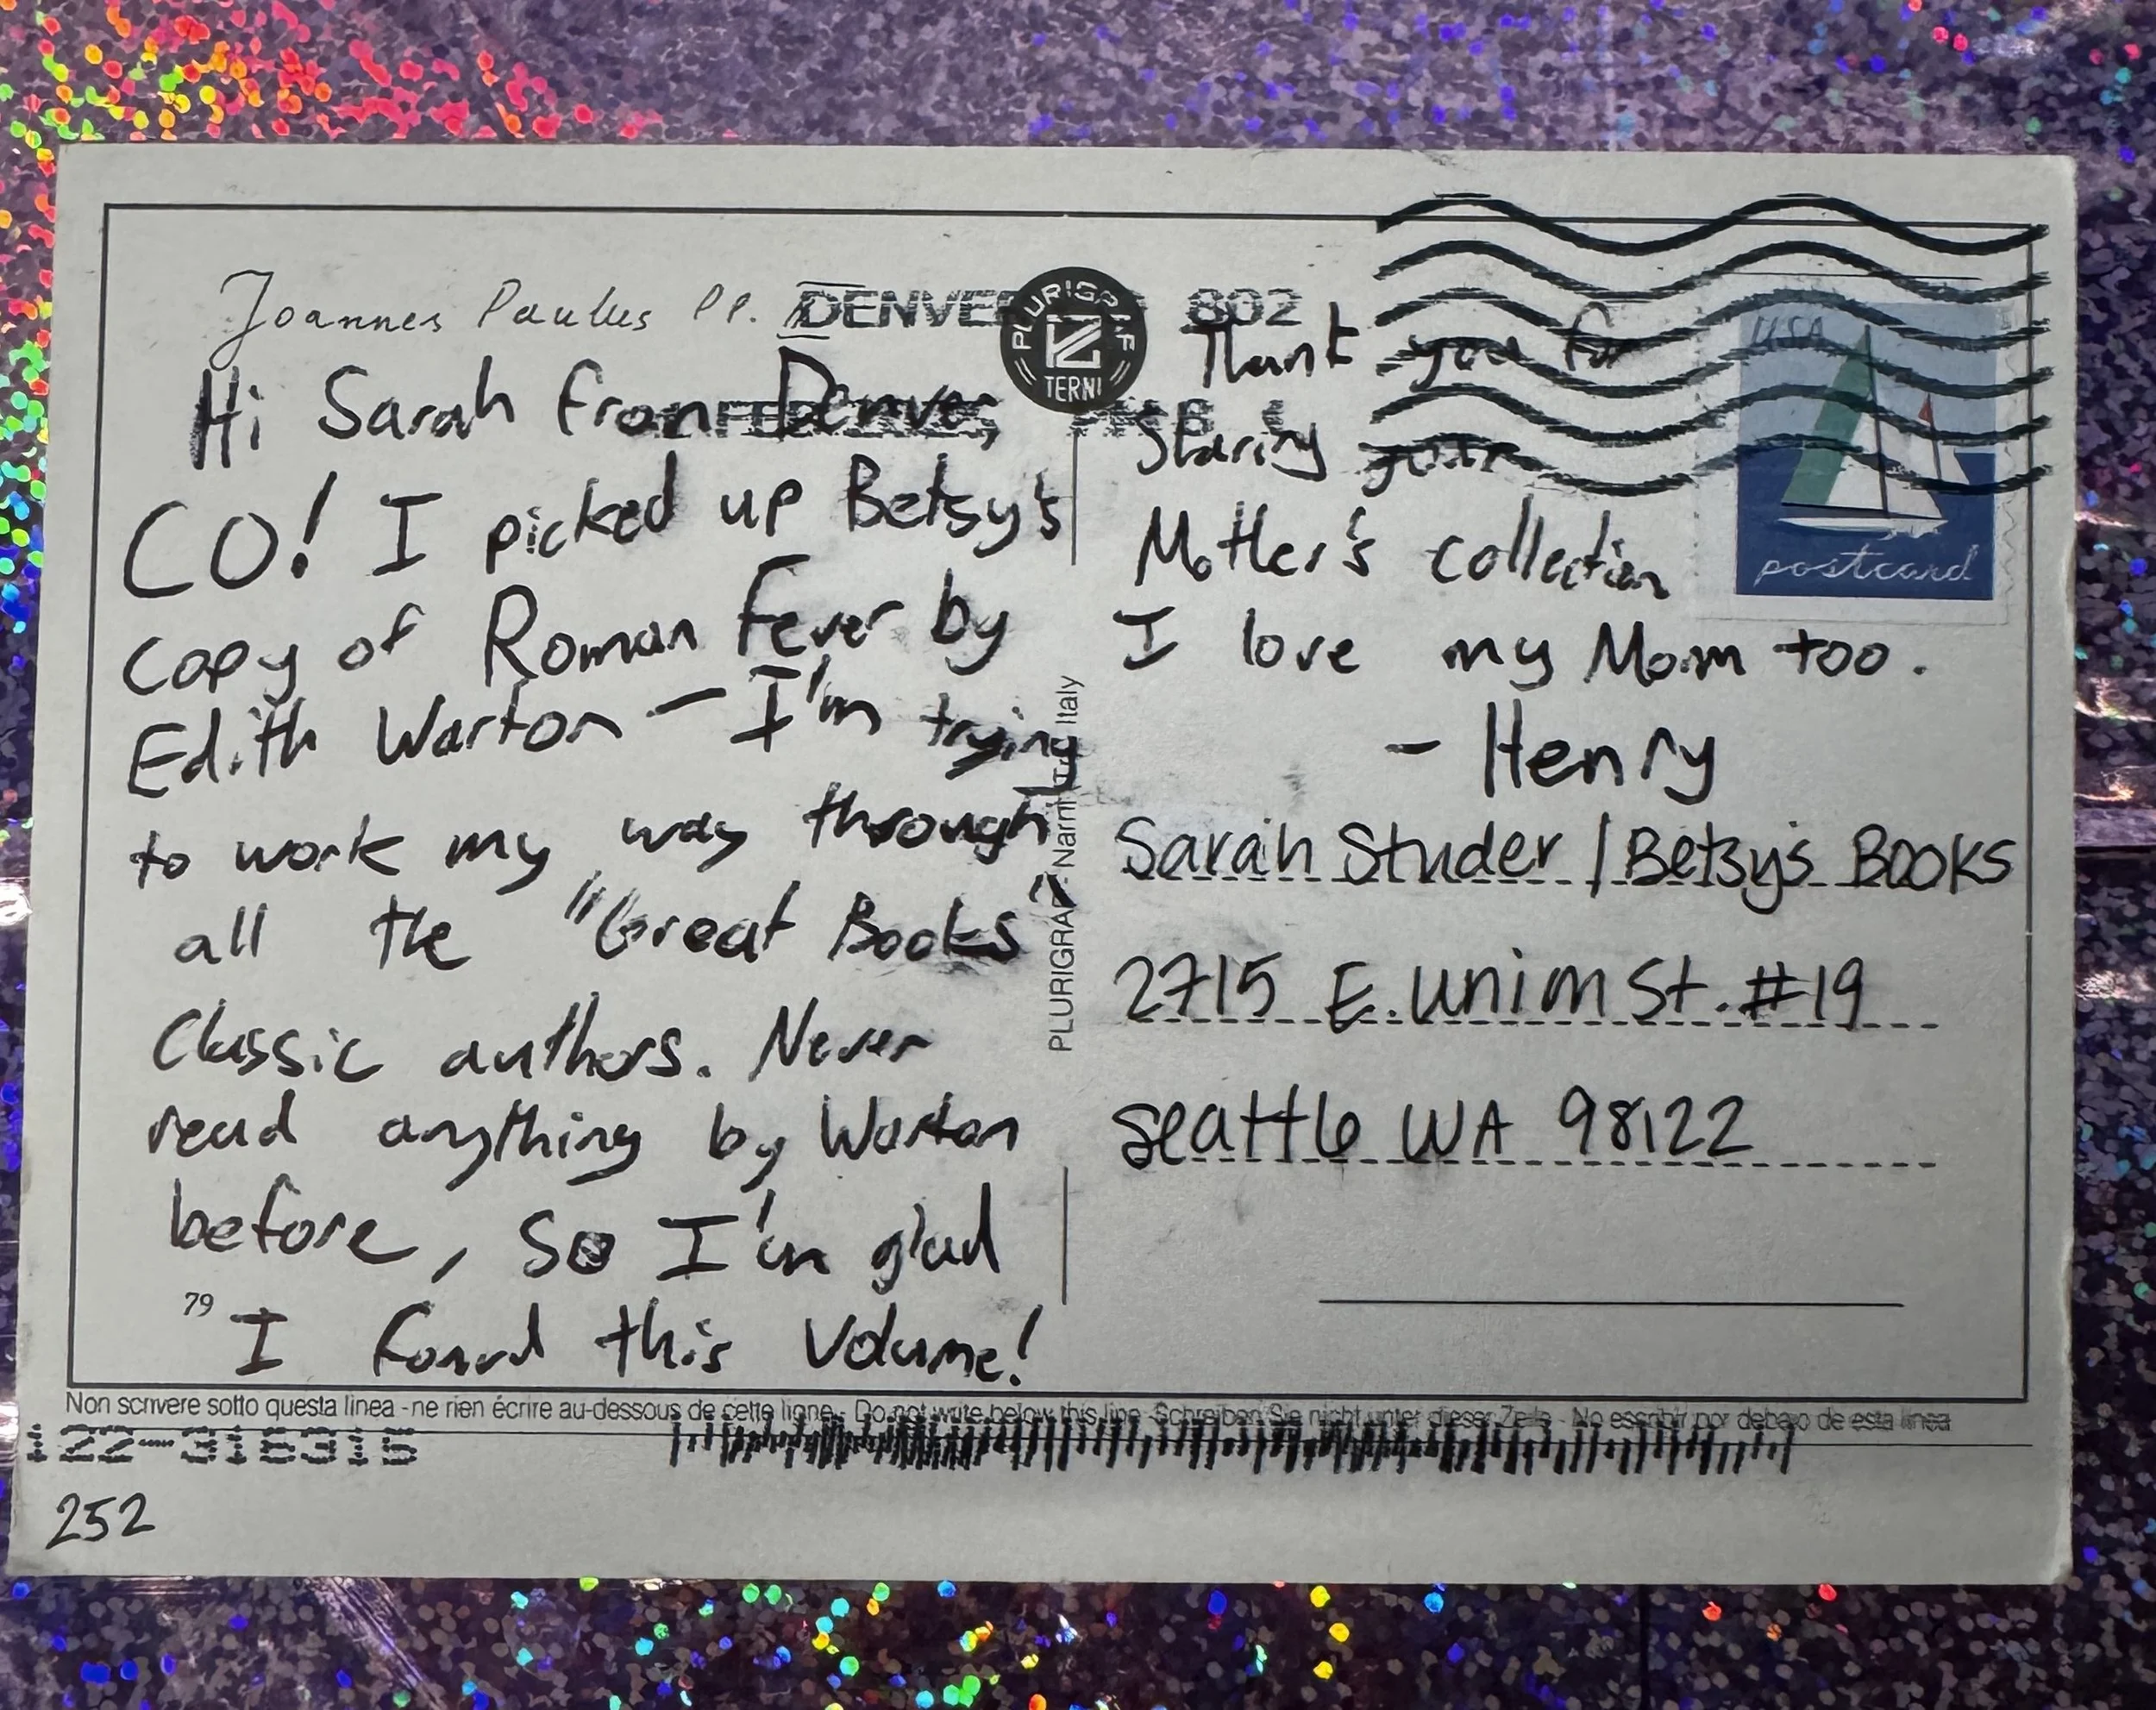 Joannes Paulus PP. II
DENVER 802
PLURIGRAF
TERNI
Hi Sarah from Denver,
CO! I picked up Betsy's
copy of Roman Fever by
Edith Warton — I'm trying
to work my way through
all the "Great Books"
Classic authors. Never
read anything by Warton
before, so I'm glad
79
I found this volume!
PLURIGRAF - Narni - Terni - Italy
Thank you for
Sharing your
Mother's collection
I love my Mom too.
- Henry
USA
postcard
Sarah Studer / Betsy's Books
2715 E. Union St. #19
Seattle WA 98122
Non scrivere sotto questa linea - ne rien écrire au-dessous de cette ligne - Do not write below this line - Schreiben Sie nicht unter dieser Zeile - No escribir por debajo de esta linea
252